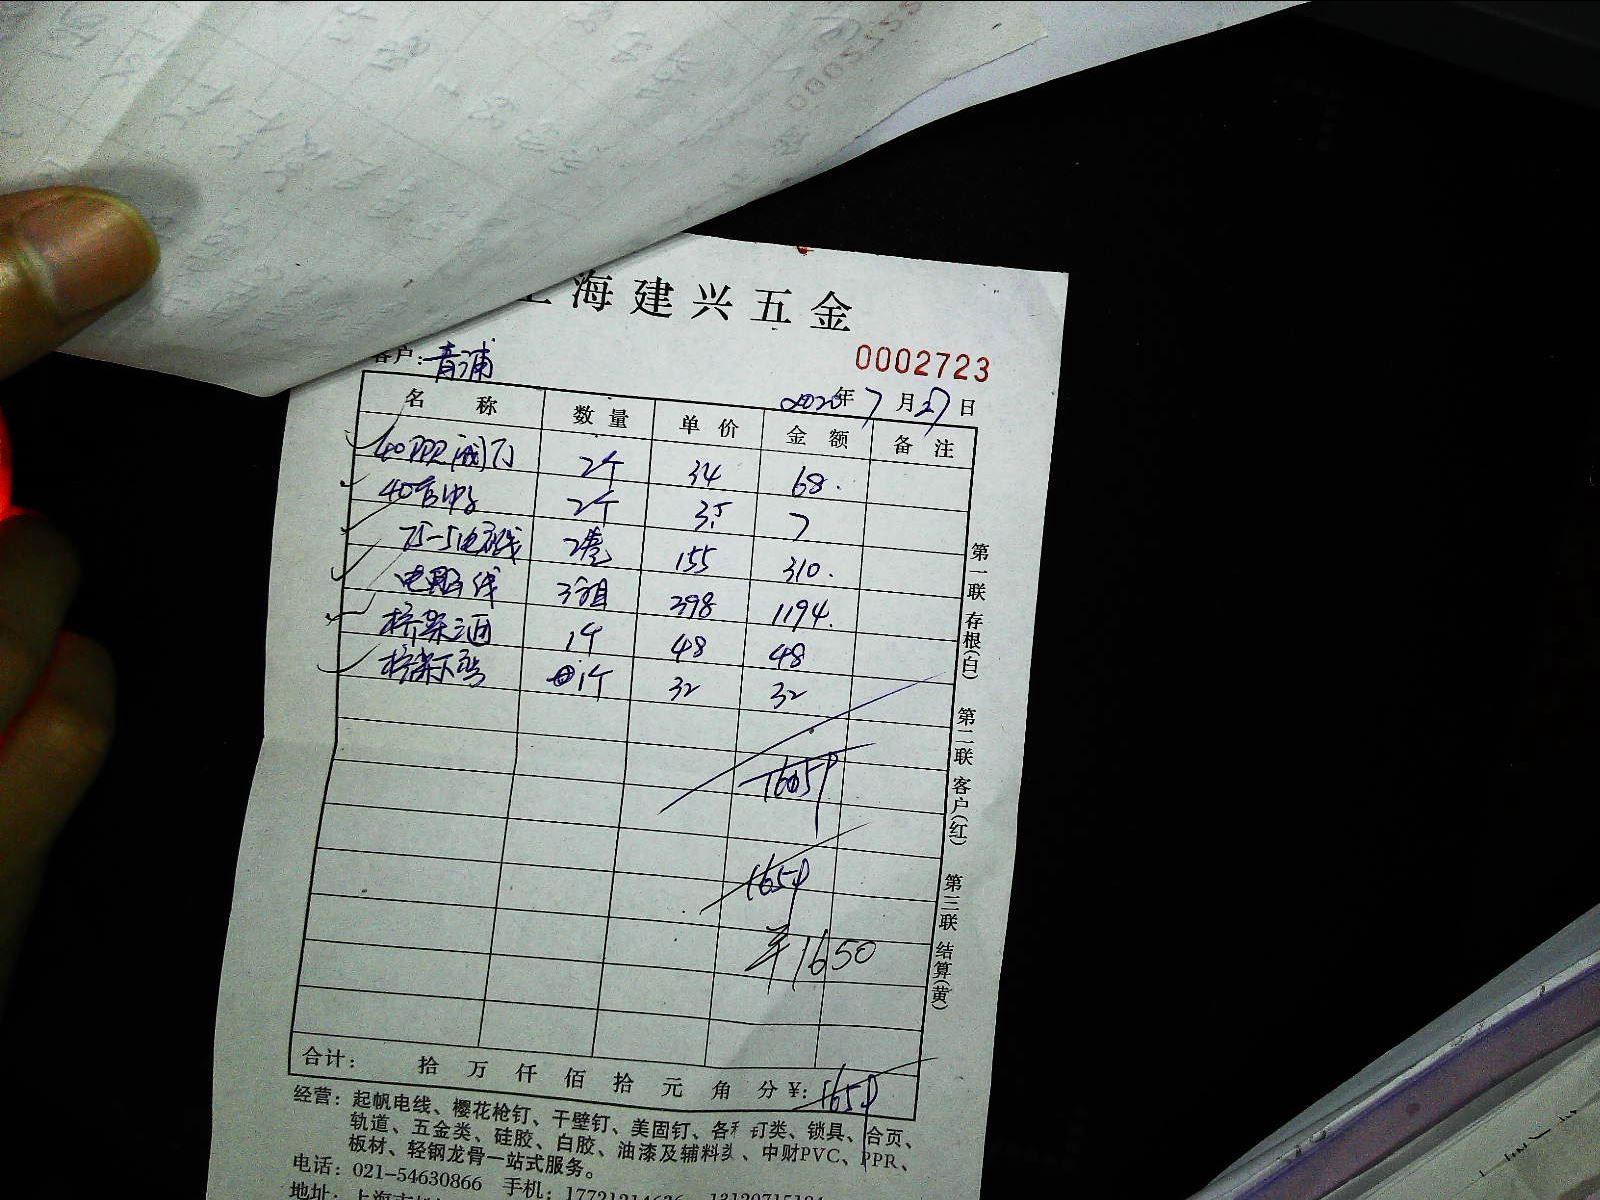 上海建兴五金
客户：青浦
0002723
2020年7月27日
名称 数量 单价 金额 备注
40PPR阀门 2个 34 68.
40 2个 3.5 7
75-5电视线 2卷 155 310.
电脑线 3箱 398 1194.
桥架三通 1个 48 48
桥架下弯 1个 32 32
1659
1659
¥1650
合计： 拾 万 仟 佰 拾 元 角 分 ¥：1659
第一联 存根(白) 第二联 客户(红) 第三联 结算(黄)
经营：起帆电线、樱花枪钉、干壁钉、美固钉、各 钉类、锁具、合页、
轨道、五金类、硅胶、白胶、油漆及辅料 、中财PVC、PPR、
板材、轻钢龙骨一站式服务。
电话：021-54630866 手机：
地址：上海市